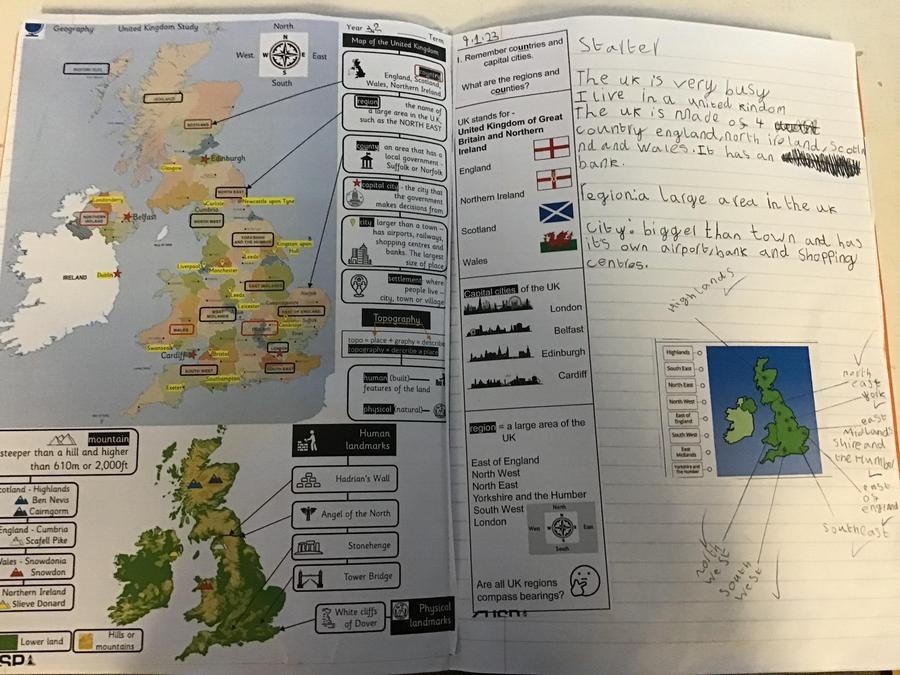 Geography United Kingdom Study
North
N
West W E East
S
South
HIGHLAND
SCOTLAND
Edinburgh
Glasgow
NORTH EAST
Londonderry
NORTHERN IRELAND
Belfast
Carlisle
Newcastle upon Tyne
Cumbria
NORTH WEST
YORKSHIRE AND THE HUMBER
Kingston upon Hull
Leeds
IRELAND
Dublin
Liverpool
Manchester
EAST MIDLANDS
Leeds
Leicester
WEST MIDLANDS
EAST OF ENGLAND
Suffolk
Cambridge
WALES
Swansea
Cardiff
Bristol
London
SOUTH WEST
SOUTH EAST
Southampton
Exeter
Year 3 Term
Map of the United Kingdom
country
England, Scotland,
Wales, Northern Ireland
region the name of
a large area in the U.K.
such as the NORTH EAST
county an area that has a
local government -
Suffolk or Norfolk
capital city - the city that
the government
makes decisions from
city larger than a town –
has airports, railways,
shopping centres and
banks. The largest
size of place
settlement where
people live –
city, town or village
Topography
topo = place + graphy = describe
topography = describe a place
human (built)
features of the land
physical (natural)
mountain
steeper than a hill and higher
than 610m or 2,000ft
Scotland - Highlands
Ben Nevis
Cairngorm
England - Cumbria
Scafell Pike
Wales - Snowdonia
Snowdon
Northern Ireland
Slieve Donard
Lower land
Hills or
mountains
Human
landmarks
Hadrian's Wall
Angel of the North
Stonehenge
Tower Bridge
White cliffs
of Dover
Physical
landmarks
9.1.23
I. Remember countries and
capital cities.
What are the regions and
countries?
UK stands for -
United Kingdom of Great
Britain and Northern
Ireland
England
Northern Ireland
Scotland
Wales
Capital cities of the UK
London
Belfast
Edinburgh
Cardiff
region = a large area of the
UK
East of England
North West
North East
Yorkshire and the Humber
South West
London
North
West East
South
Are all UK regions
compass bearings?
Starter
The uk is very busy
I live in a united kindom
The uk is made of 4
country england, north ireland, Scotla
nd and Wales. It has an
bank.
region: a large area in the uk
city: bigger than town and has
it's own airport, bank and shopping
centres.
Highlands
Highlands
South East
North East
North West
East of
England
South West
East
Midlands
Yorkshire and
The Humber
north
east
york
east
Midlands
shire and
the Humber
east
of
england
Southeast
north
west
South
west